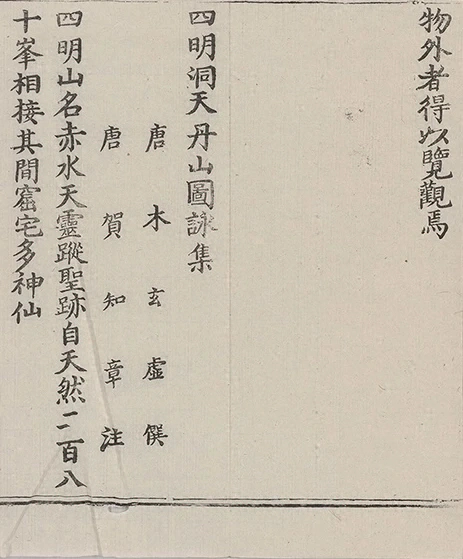 物外者得以覽觀焉
四明洞天丹山圖詠集
唐木玄虛撰
唐賀知章注
四明山名赤水天靈蹤聖跡自天然二百八
十峯相接其間窟宅多神仙